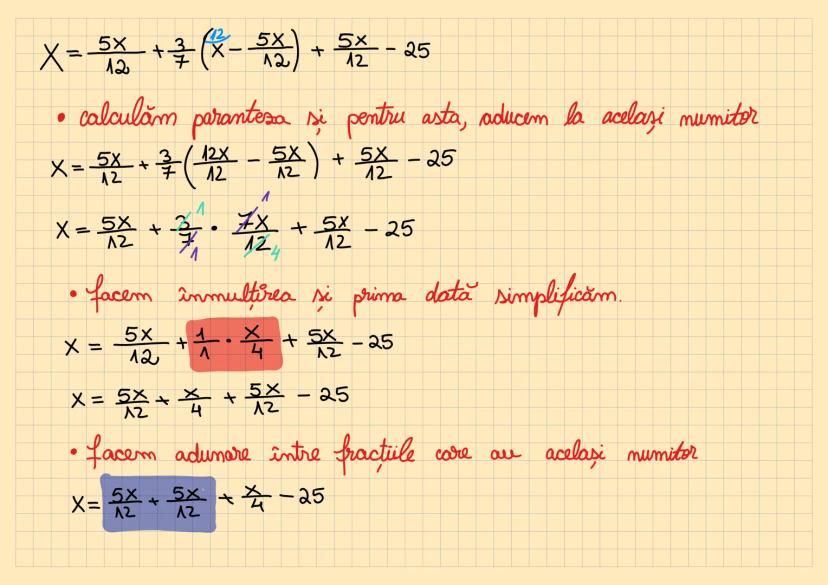 X = 5x/12 + 3/7 (12 x - 5x/12) + 5x/12 - 25
• calculăm paranteza și pentru asta, aducem la același numitor
X = 5x/12 + 3/7 (12x/12 - 5x/12) + 5x/12 - 25
X = 5x/12 + 3/7 1 1 • 7x/12 1 4 + 5x/12 - 25
• facem înmulțirea și prima dată simplificăm.
X = 5x/12 + 1/1 • x/4 + 5x/12 - 25
X = 5x/12 + x/4 + 5x/12 - 25
• facem adunare între fracțiile care au același numitor
X = 5x/12 + 5x/12 + x/4 - 25